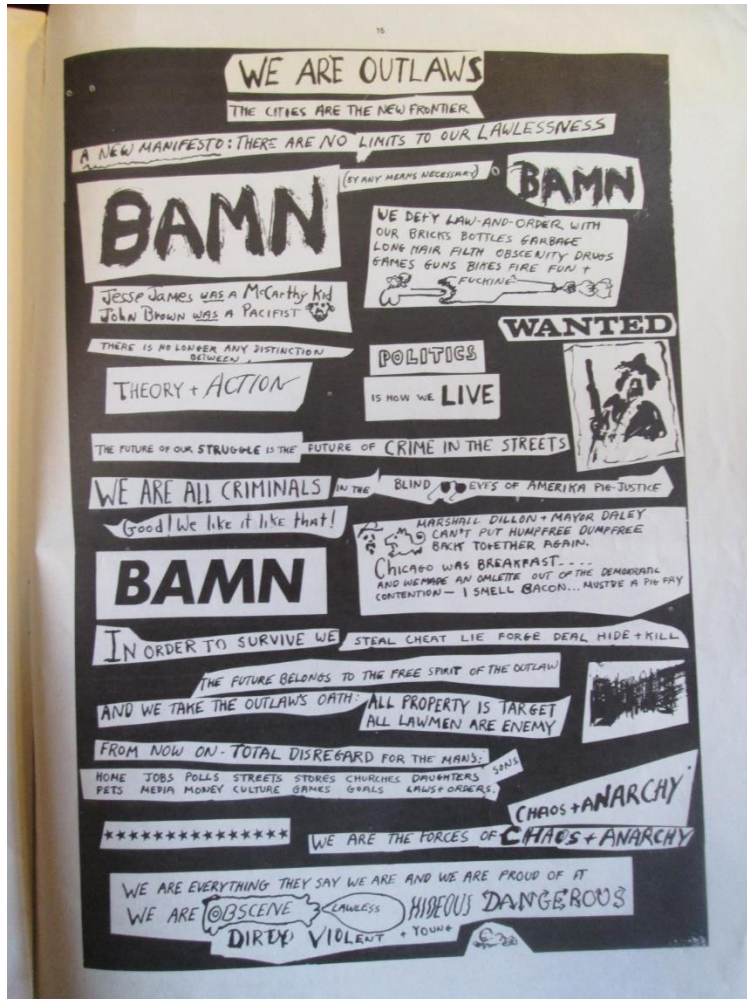 15
WE ARE OUTLAWS
THE CITIES ARE THE NEW FRONTIER
A NEW MANIFESTO: THERE ARE NO LIMITS TO OUR LAWLESSNESS
BAMN
(BY ANY MEANS NECESSARY)
BAMN
WE DEFY LAW-AND-ORDER WITH
OUR BRICKS BOTTLES GARBAGE
LONG HAIR FILTH OBSCENITY DRUGS
GAMES GUNS BIKES FIRE FUN +
FUCKING
Jesse James was a McCarthy Kid
John Brown was a Pacifist
WANTED
THERE IS NO LONGER ANY DISTINCTION
BETWEEN
THEORY + ACTION
POLITICS
IS HOW WE LIVE
THE FUTURE OF OUR STRUGGLE IS THE FUTURE OF CRIME IN THE STREETS
WE ARE ALL CRIMINALS IN THE BLIND EYES OF AMERIKA PIG-JUSTICE
Good! We like it like that!
MARSHALL DILLON + MAYOR DALEY
CAN'T PUT HUMPFREE DUMPFREE
BACK TOGETHER AGAIN.
CHICAGO WAS BREAKFAST....
AND WE MADE AN OMLETTE OUT OF THE DEMOKRATIC
CONTENTION - I SMELL BACON... MUSTBE A PIG FRY
BAMN
IN ORDER TO SURVIVE WE STEAL CHEAT LIE FORGE DEAL HIDE + KILL
THE FUTURE BELONGS TO THE FREE SPIRIT OF THE OUTLAW
AND WE TAKE THE OUTLAW'S OATH: ALL PROPERTY IS TARGET
ALL LAWMEN ARE ENEMY
FROM NOW ON - TOTAL DISREGARD FOR THE MAN'S:
HOME JOBS POLLS STREETS STORES CHURCHES DAUGHTERS SONS
PETS MEDIA MONEY CULTURE GAMES GOALS LAWS + ORDERS.
CHAOS + ANARCHY
★★★★★★★★★★★★★★
WE ARE THE FORCES OF CHAOS + ANARCHY
WE ARE EVERYTHING THEY SAY WE ARE AND WE ARE PROUD OF IT
WE ARE OBSCENE LAWLESS HIDEOUS DANGEROUS
DIRTY VIOLENT + YOUNG